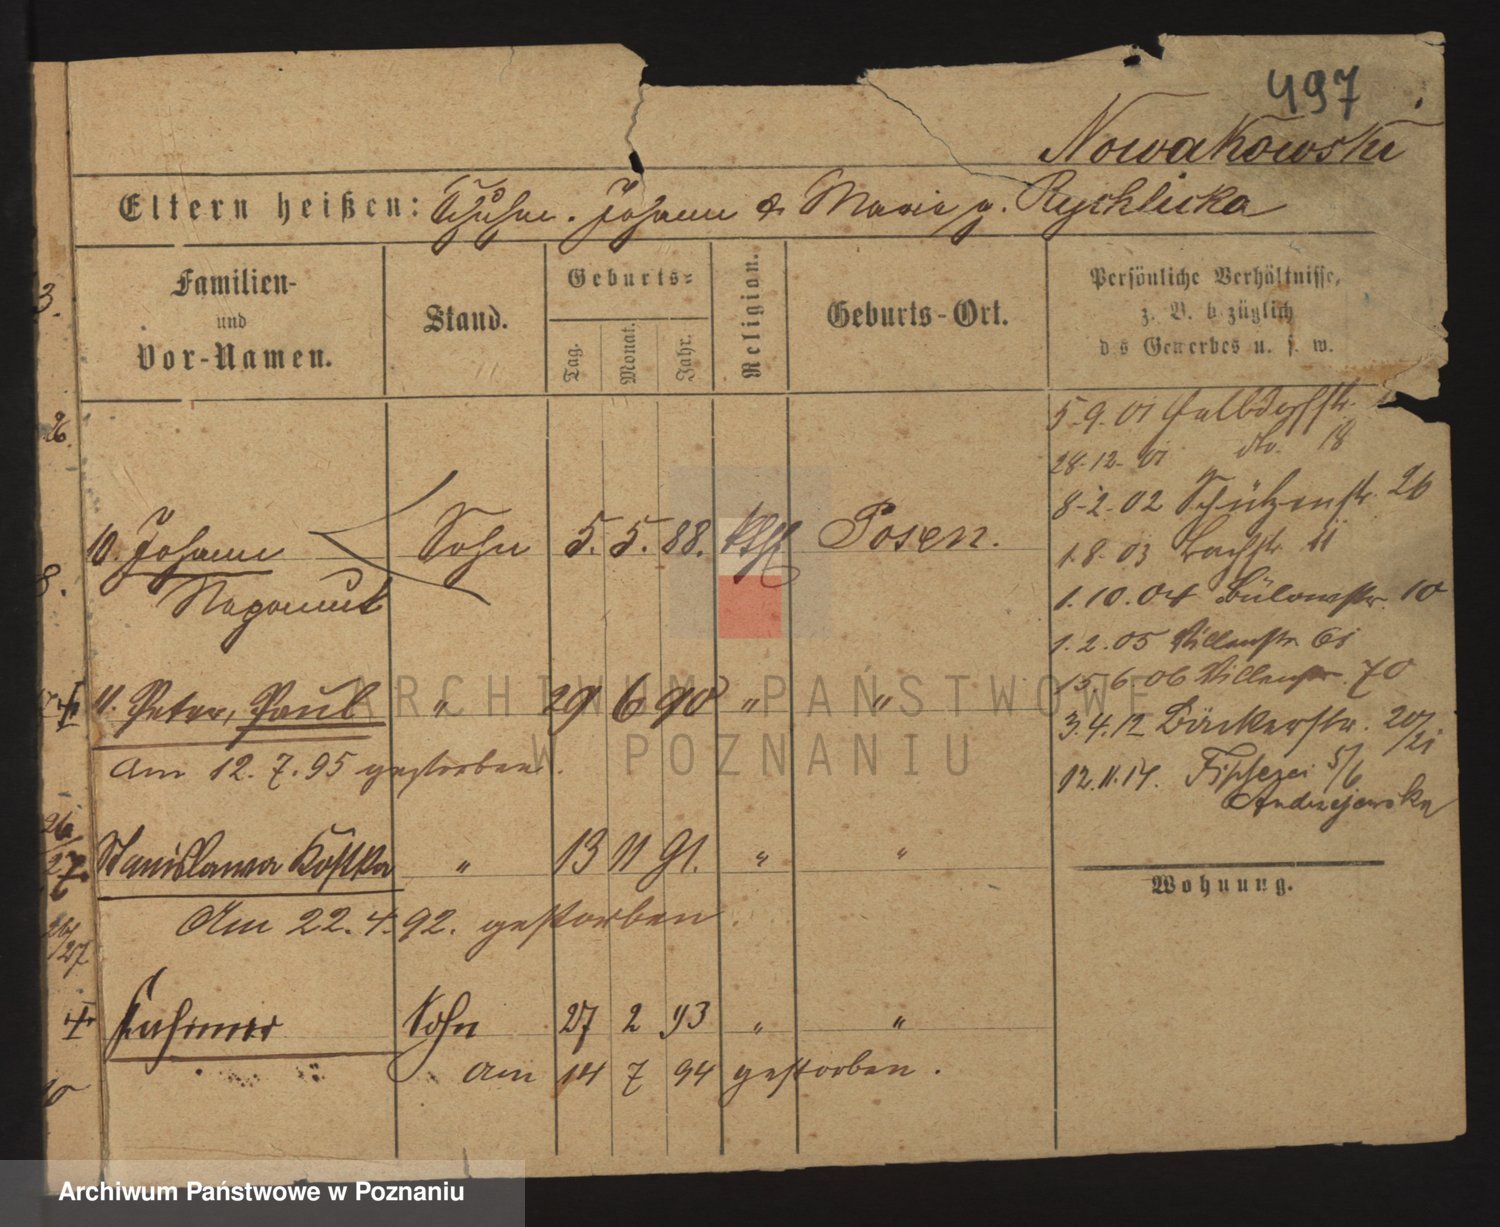 497
Nowakowski
Eltern heißen: Johann & Marie g. Rychlicka
Familien-
und
Vor-Namen.
Stand.
Geburts-
Tag.
Monat.
Jahr.
Religion.
Geburts-Ort.
Persönliche Verhältnisse,
z. B. bezüglich
des Gewerbes u. s. w.
5.9.01
28.12.01 do. 18
8.2.02 Schützenstr. 26
1.8.03 Bachstr. 11
1.10.04 Bülowstr. 10
1.2.05 Villenstr. 61
15.6.06 Villenstr. 70
3.4.12 Bäckerstr. 20/21
12.11.14. 5/6
Andrzejewska
Wohnung.
10. Johann Sohn 5. 5. 88. kth Posen.
Nepomuk
11. Peter, Paul " 29 6 90 " "
am 12.7.95 gestorben.
Stanislawa Kostka " 13 11 91. " "
Am 22.4.92. gestorben.
Sohn 27 2 93 " "
am 14 7 94 gestorben.
ARCHIWUM PAŃSTWOWE
W POZNANIU
Archiwum Państwowe w Poznaniu